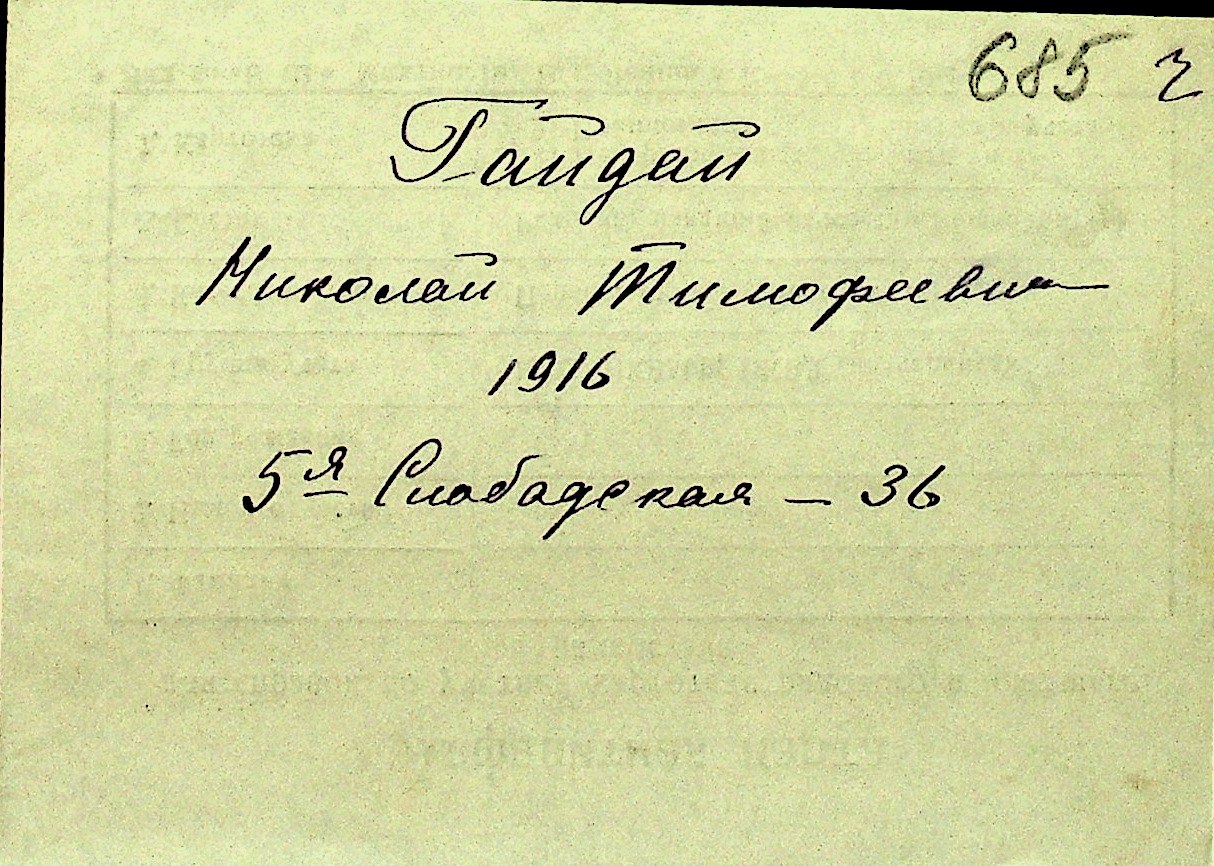 685 г
Гайдай
Николай Тимофеевич
1916
5я Слободская – 36